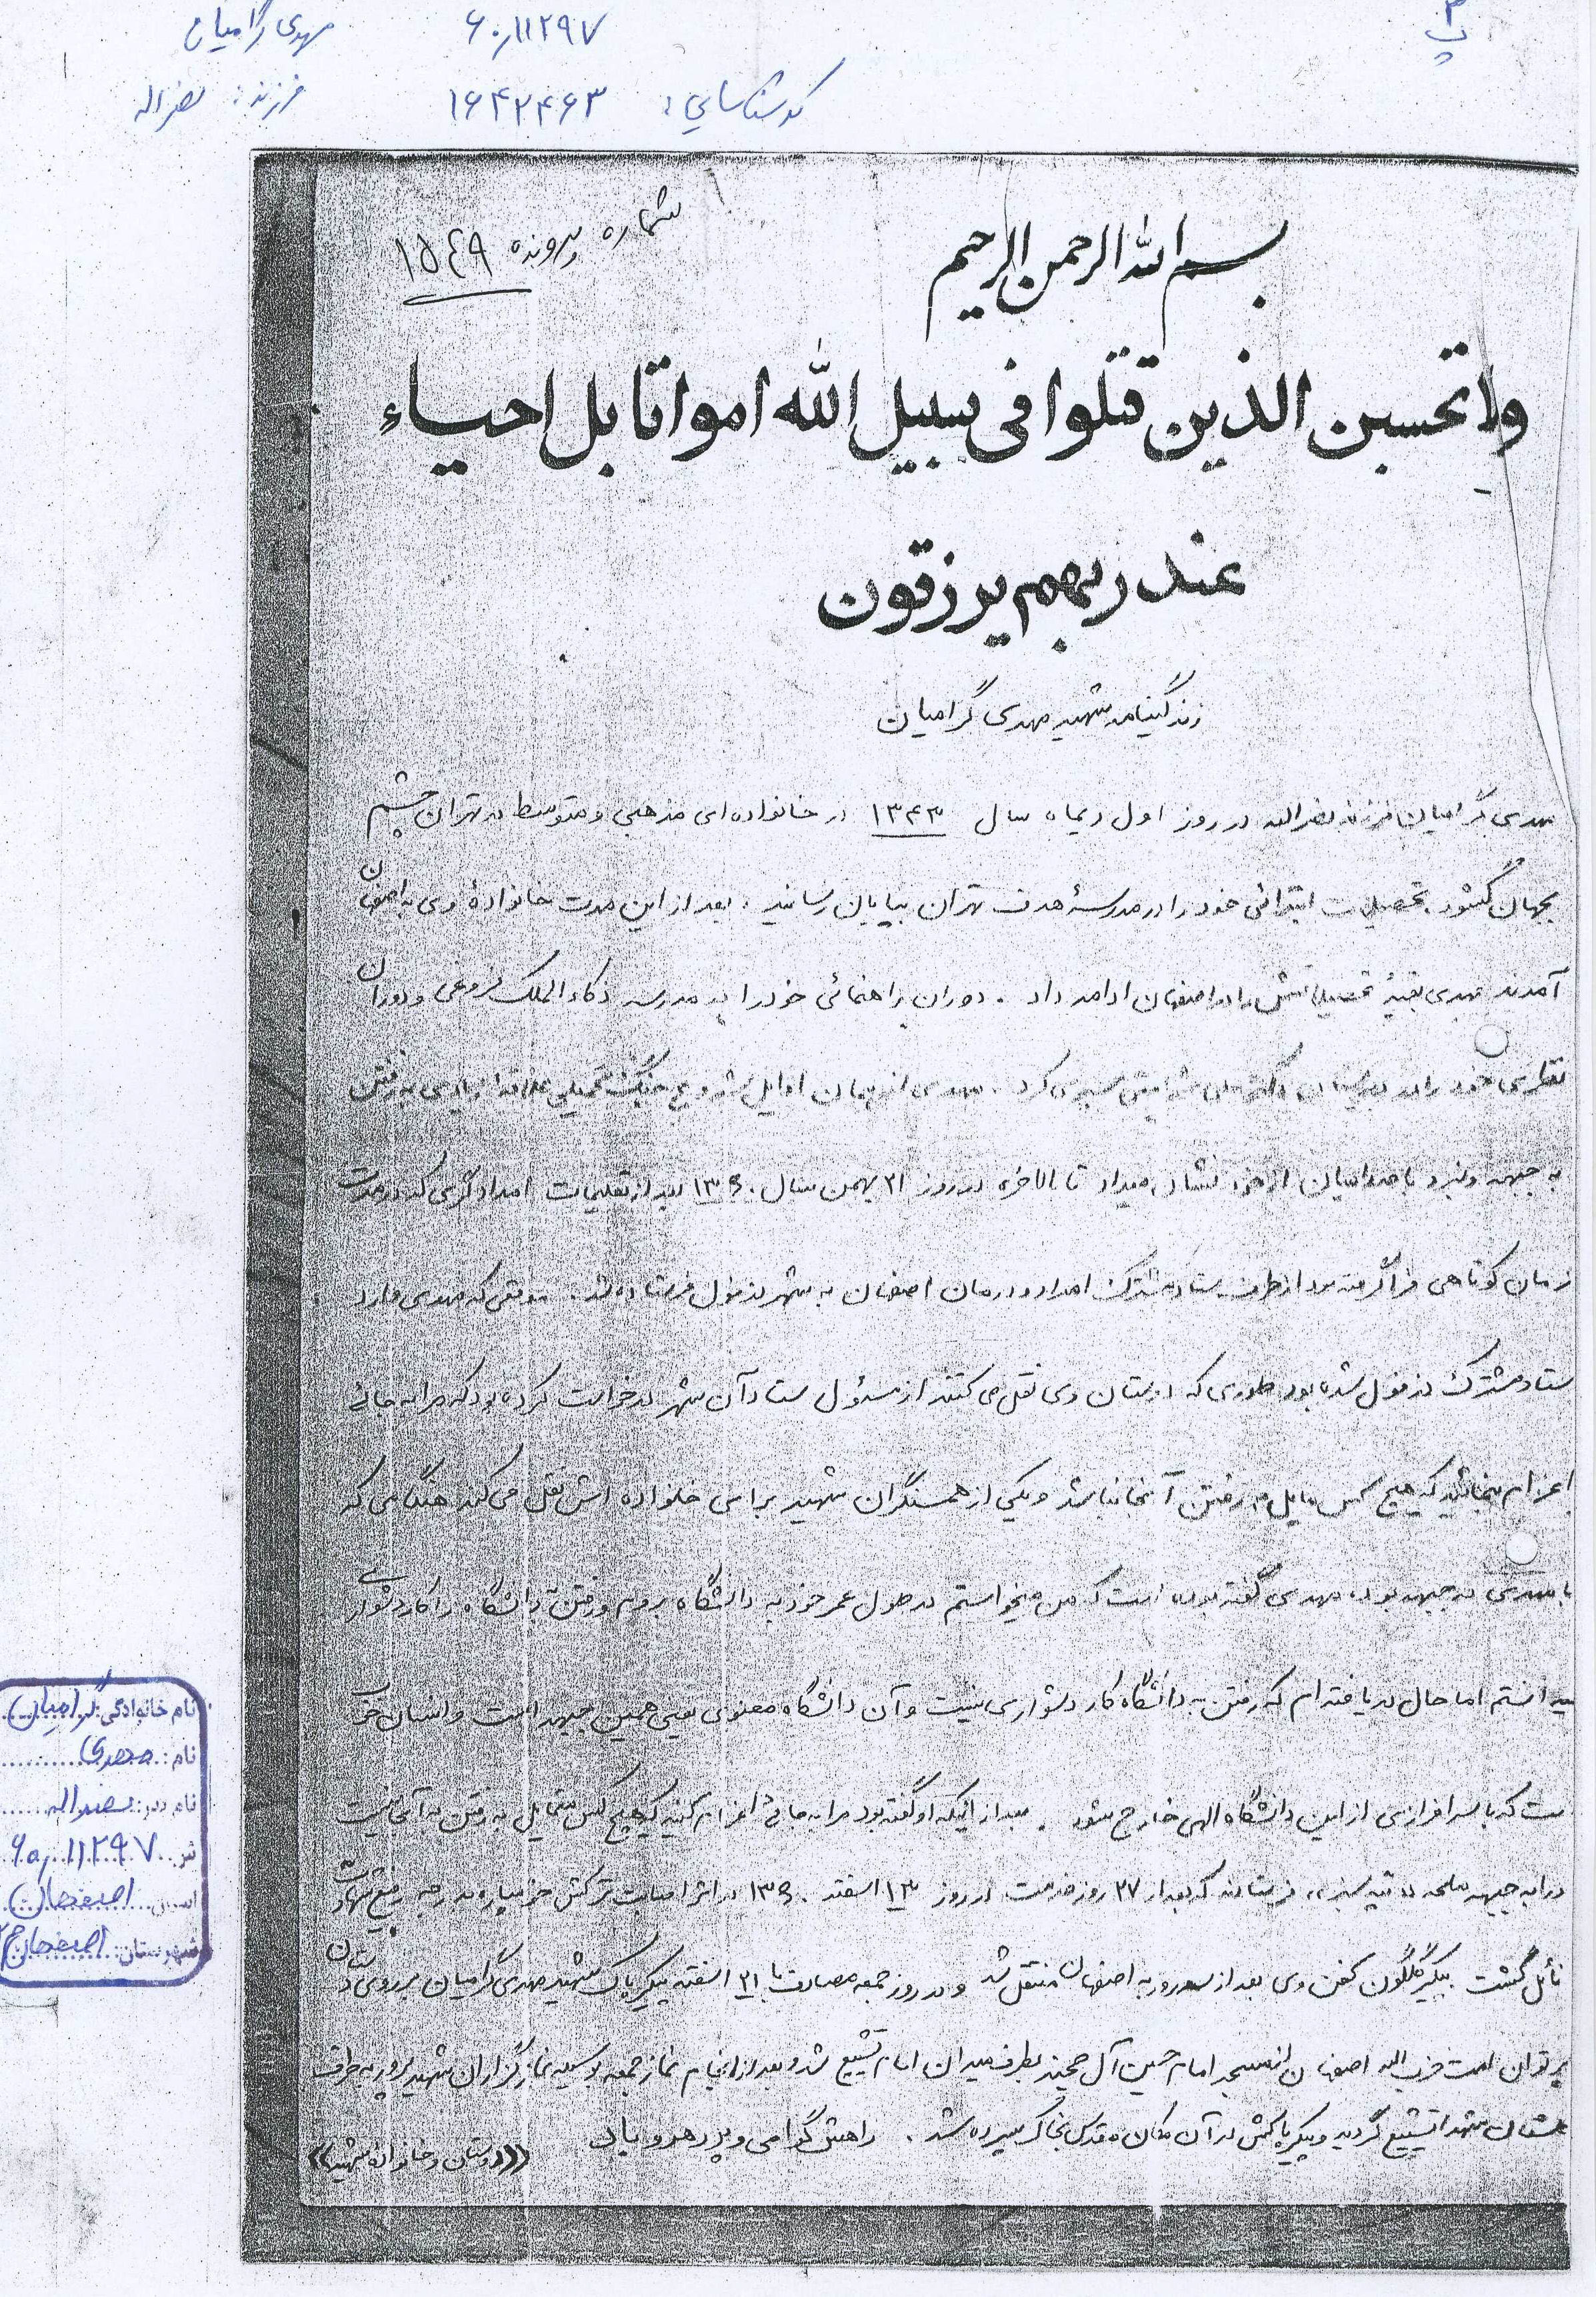 ۳
پ
مهدی گرامیان ۶۰٫۱۱۲۹۷
فرزند: نصراله کدشناسایی: ۱۶۴۲۴۶۳
شماره پرونده ۱۵۴۹
بسم الله الرحمن الرحیم
ولا تحسبن الذین قتلوا فی سبیل الله امواتا بل احیاء
عند ربهم یرزقون
زندگینامه شهید مهدی گرامیان
مهدی گرامیان فرزند نصرالله در روز اول دیماه سال ۱۳۴۳ در خانواده ای مذهبی و متوسط در تهران چشم
بجهان گشود تحصیلات ابتدائی خود را در مدرسهٔ هدف تهران بپایان رسانید. بعد از این مدت خانوادهٔ وی به اصفهان
آمدند مهدی بقیهٔ تحصیلاتش را در اصفهان ادامه داد. دوران راهنمائی خود را در مدرسه ذکاء الملک فروغی و دوران
نظری خود را در دبیرستان دکتر علی شریعتی سپری کرد. مهدی از همان اوایل شروع جنگ تحمیلی علاقه زیادی به رفتن
به جبهه و نبرد با صدامیان از خود نشان میداد تا بالاخره در روز ۲۱ بهمن سال ۱۳۶۰ بعد از تعلیمات امدادگری که در مدت
زمان کوتاهی فراگرفته بود از طرف ستاد مشترک امداد و درمان اصفهان به شهر دزفول فرستاده شد. موقعی که مهدی وارد
ستاد مشترک دزفول شده بود طوری که دوستان وی نقل می کنند از مسئول ستاد آن شهر درخواست کرده بود که مرا به جائی
اعزام بنمائید که هیچ کس مایل به رفتن آنجا نباشد و یکی از همسنگران شهید برای خانواده اش نقل می کند هنگامی که
با مهدی در جبهه بود، مهدی گفته بوده است که من میخواستم در طول عمر خود به دانشگاه بروم و رفتن به دانشگاه را کار دشواری
میدانستم اما حال دریافته ام که رفتن به دانشگاه کار دشواری نیست و آن دانشگاه معنوی یعنی همین جبهه است و انسان
ست که با سرافرازی از این دانشگاه الهی خارج شود. بعد از اینکه او گفته بود مرا به جائی اعزام کنید که هیچ کس متمایل به رفتن به آنجا نیست
ورا به جبهه «تپه سبز» فرستادند که بعد از ۲۷ روز خدمت در روز ۱۳ اسفند ۱۳۶۰ در اثر اصابت ترکش خمپاره بدرجه رفیع شهادت
نائل گشت پیکر گلگون کفن وی بعد از روز به اصفهان منتقل شد و در روز جمعه مصادف با ۲۱ اسفند پیکر پاک شهید مهدی گرامیان بر روی دستان
پر توان امت حزب الله اصفهان از مسجد امام حسین بطرف میدان امام تشییع شد و بعد از انجام نماز جمعه بوسیله نمازگزاران شهید پرور به طرف
گلستان شهدا تشییع گردید و پیکر پاکش در آن مکان مقدس بخاک سپرده شد. راهش گرامی و پر رهرو باد
«دوستان و خانواده شهید»
نام خانوادگی: گرامیان
نام: مهدی
نام پدر: نصراله
۶۰٫۱۱۲۹۷
استان: اصفهان
شهرستان: اصفهان